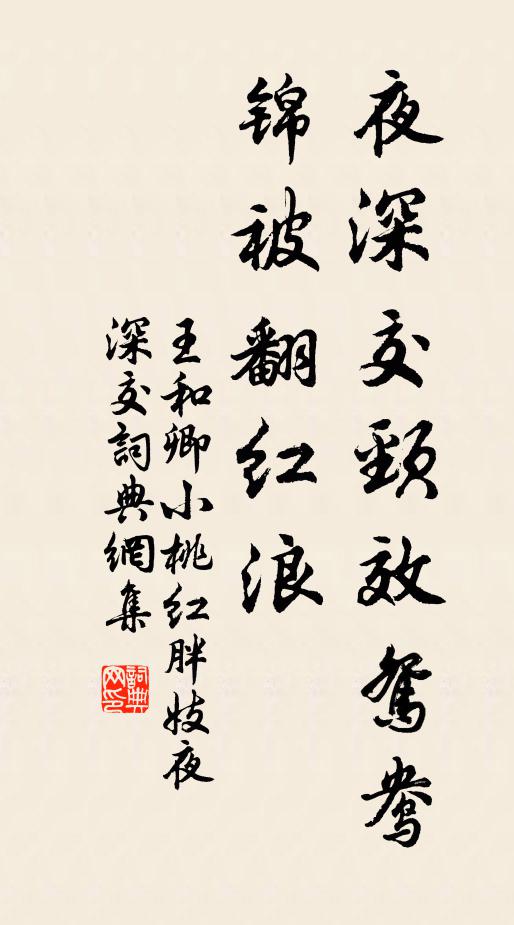 夜深交頸效鴛鴦
锦被翻红浪
王和卿小桃红胖妓夜
深交詞典網集
詞典
网印